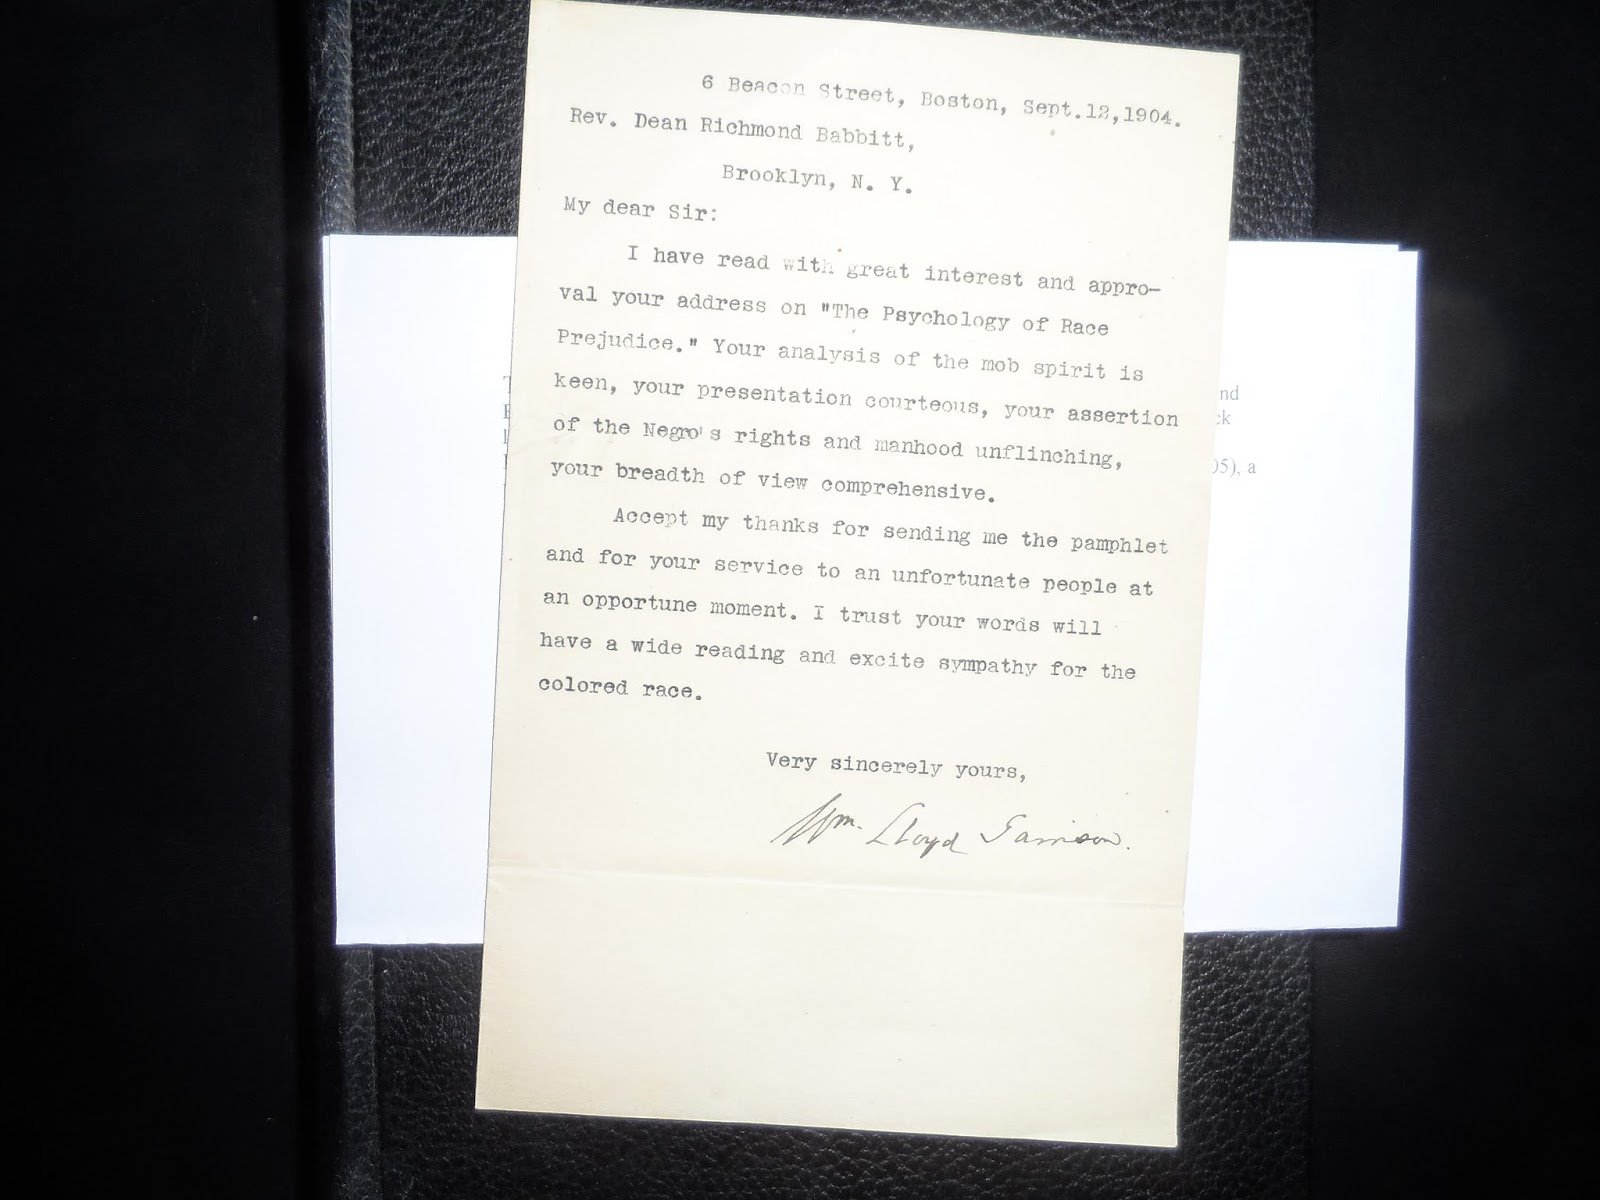 6 Beacon Street, Boston, Sept.12,1904.
Rev. Dean Richmond Babbitt,
Brooklyn, N. Y.
My dear Sir:
I have read with great interest and appro-
val your address on "The Psychology of Race
Prejudice." Your analysis of the mob spirit is
keen, your presentation courteous, your assertion
of the Negro's rights and manhood unflinching,
your breadth of view comprehensive.
Accept my thanks for sending me the pamphlet
and for your service to an unfortunate people at
an opportune moment. I trust your words will
have a wide reading and excite sympathy for the
colored race.
Very sincerely yours,
Wm. Lloyd Garrison.
05), a